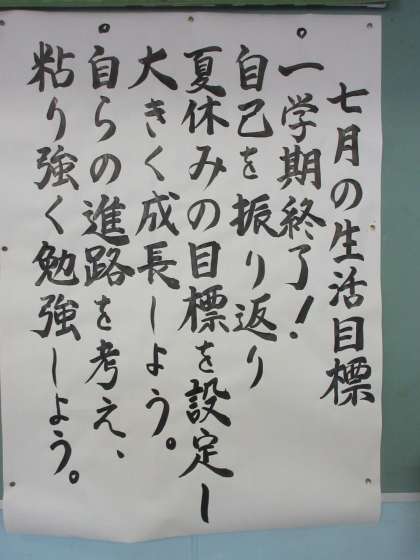 七月の生活目標
◦一学期終了!
自己を振り返り
夏休みの目標を設定し
大きく成長しよう。
◦自らの進路を考え、
粘り強く勉強しよう。